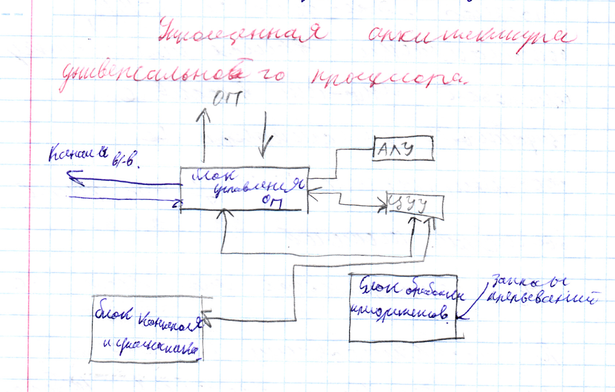 Упрощенная архитектура
универсального процессора.
ОП
Каналы
в/-в.
блок
управления
ОП
АЛУ
ЦУУ
блок контроля
и
Блок обработки
Запросы
прерываний